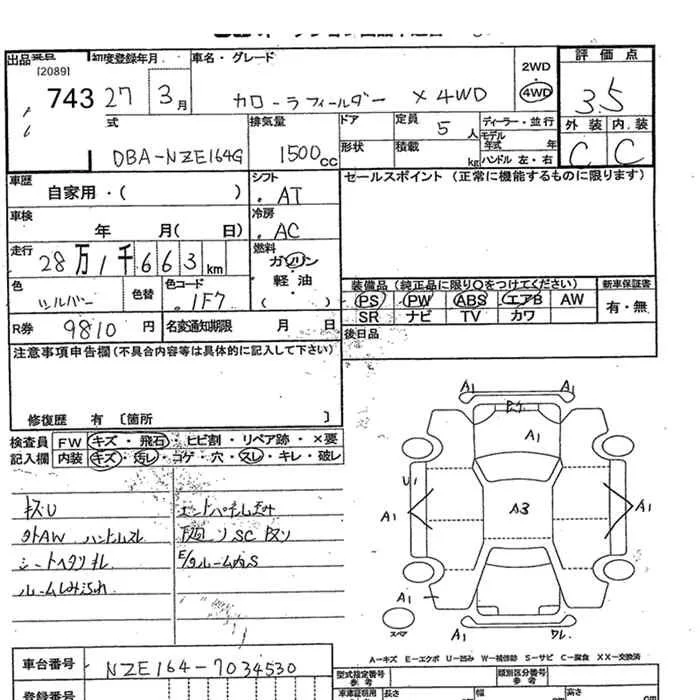 出品番号 初度登録年月 車名・グレード 2WD 評価点
[2089]
743 27 3月 カローラフィールダー X 4WD 4WD 3.5
型式 排気量 ドア 定員 5人 ディーラー・並行 外装 内装
DBA-NZE164G 1500cc 形状 積載 kg モデル年式 年 C C
ハンドル 左・右
車歴 自家用・( ) シフト AT セールスポイント (正常に機能するものに限ります)
車検 年 月( 日) 冷房 AC
走行 28万1千663km 燃料 ガソリン・軽油 ( )
装備品 (純正品に限り○をつけてください) 新車保証書
色 シルバー 色替 色コード 1F7 PS PW ABS エアB AW 有・無
SR ナビ TV カワ
R券 9810円 名変通知期限 月 日 後日品
注意事項申告欄(不具合内容等は具体的に記入して下さい)
修復歴 有 〔箇所 〕
検査員記入欄 FW キズ・飛石・ヒビ割・リペア跡・×要
内装 キズ・汚レ・コゲ・穴・スレ・キレ・破レ
キズU
ハンドルスレ
シートヘタリ
A1 A1
A1
U1
A1 A3 A1
A1
スペア A1
A-キズ E-エクボ U-凹み W-補修跡 S-サビ C-腐食 XX-交換済
車台番号 NZE164-7034530 型式指定番号 参考 類別区分番号 参考
登録番号 車庫証明用 長さ cm 幅 cm 高さ cm